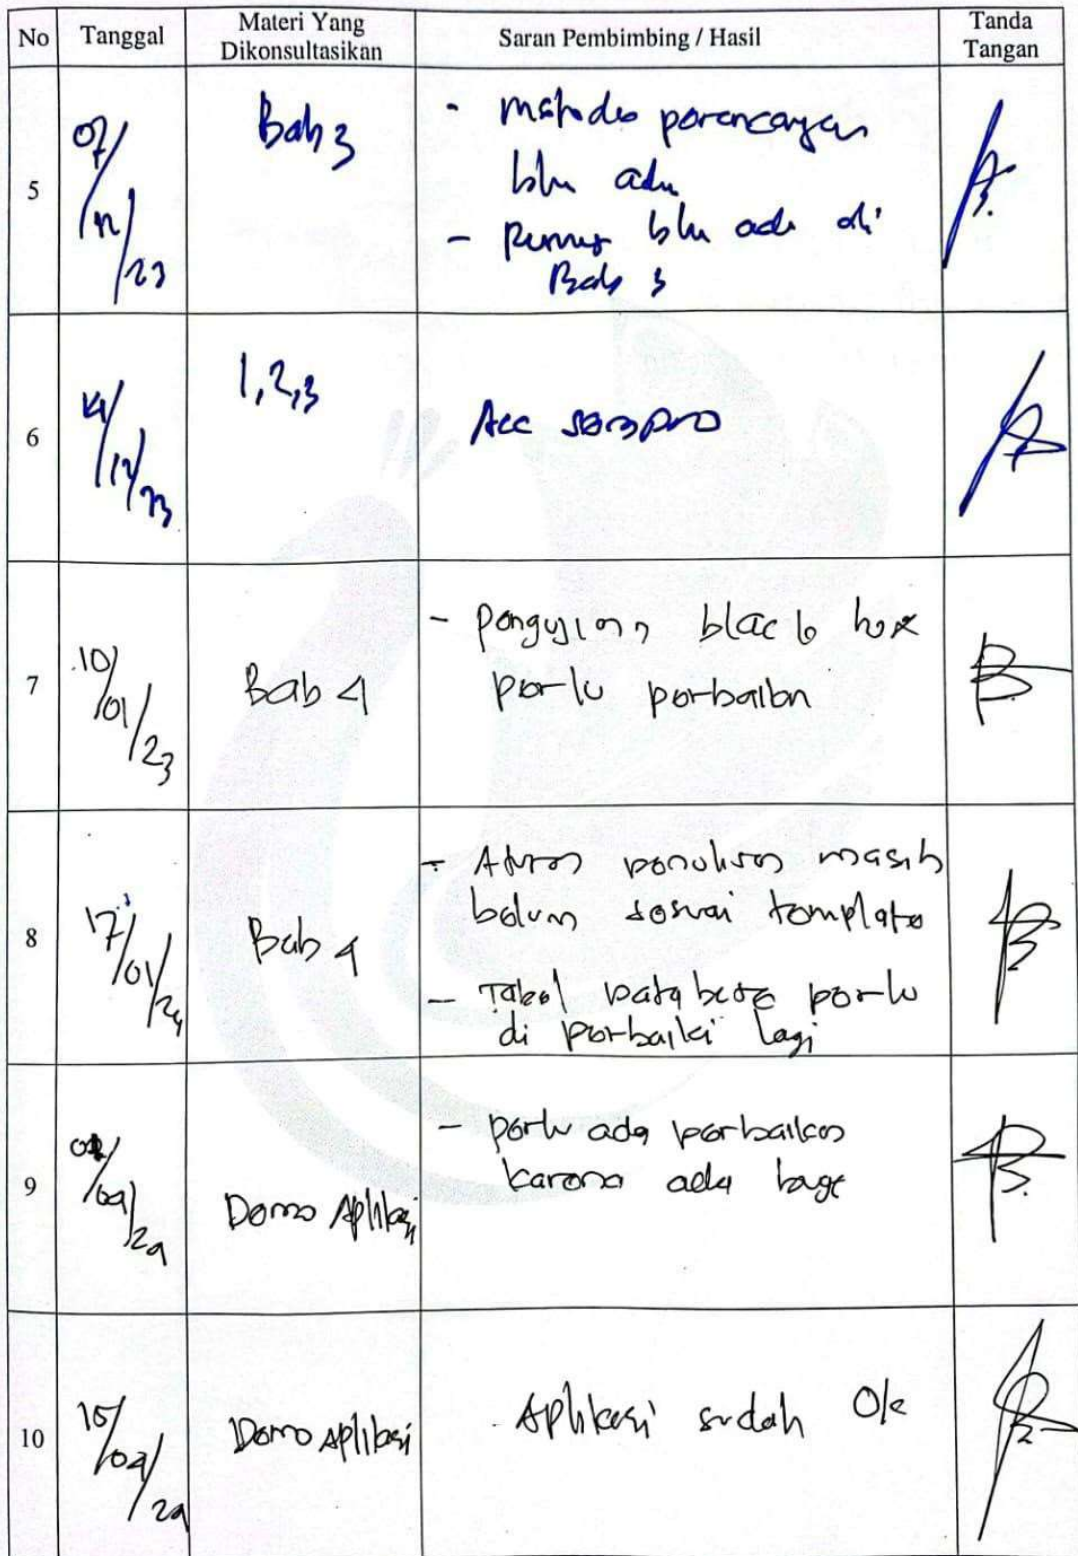 No Tanggal Materi Yang Dikonsultasikan Saran Pembimbing / Hasil Tanda Tangan
5 07/12/23 Bab 3 - metode perancangan
blm ada
- rumus blm ada di
Bab 3
6 14/12/23 1,2,3 Acc sempro
7 10/01/23 Bab 4 - pengujian black box
perlu perbaikan
8 17/01/24 Bab 4 - Aturan penulisan masih
belum sesuai template
- Tabel database perlu
di perbaiki lagi
9 Demo Aplikasi - perlu ada perbaikan
karena ada
10 Demo Aplikasi Aplikasi sudah Ok